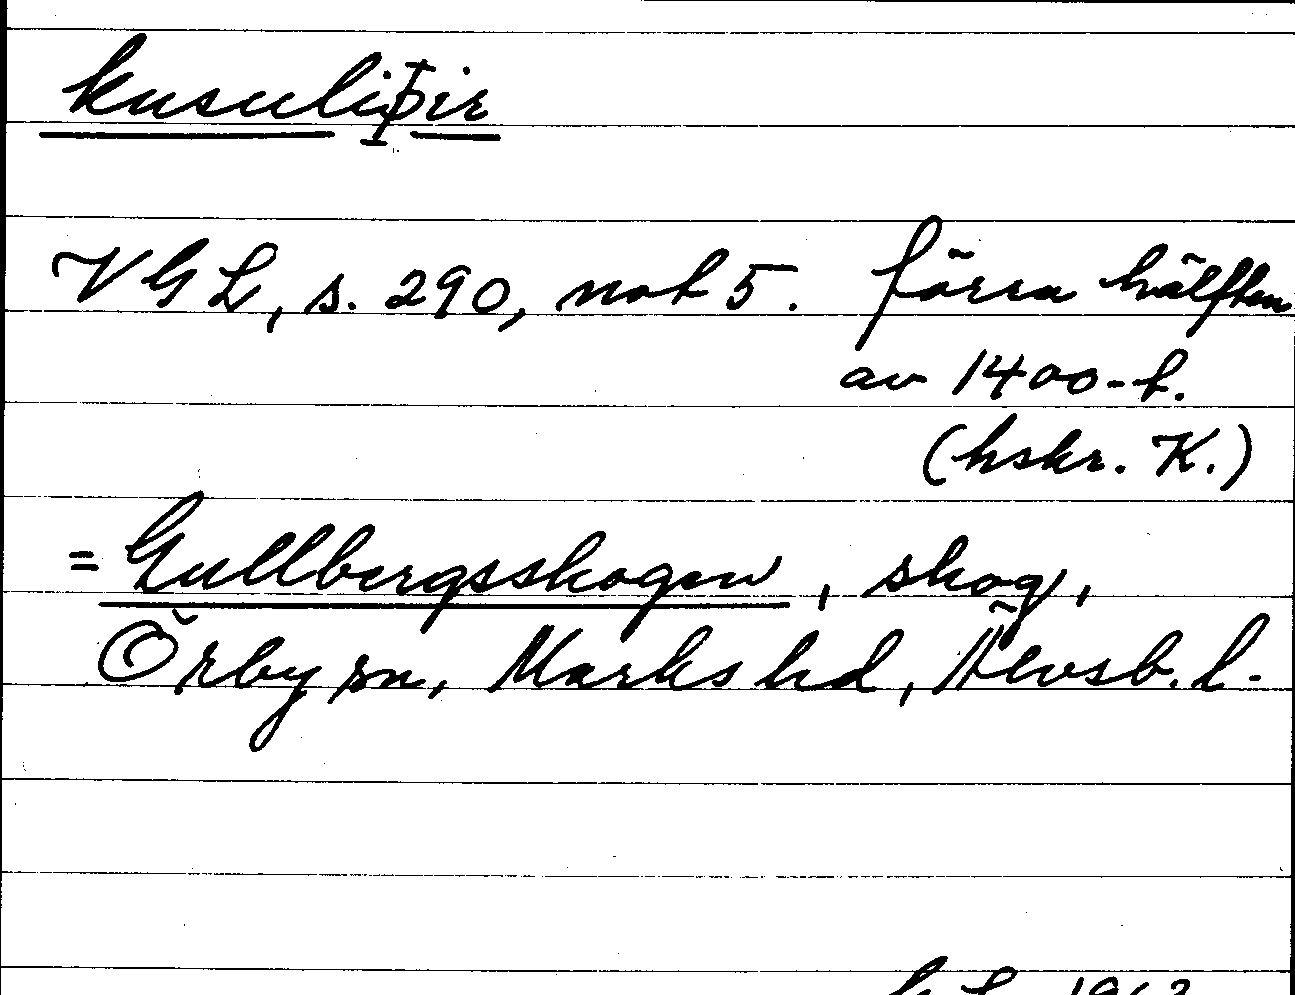 kusuliþir
VGL, s. 290, not 5. förra hälften
av 1400-t.
(hskr. K.)
= Gullbergsskogen, skog,
Örby sn, Marks hd, Älvsb. l.